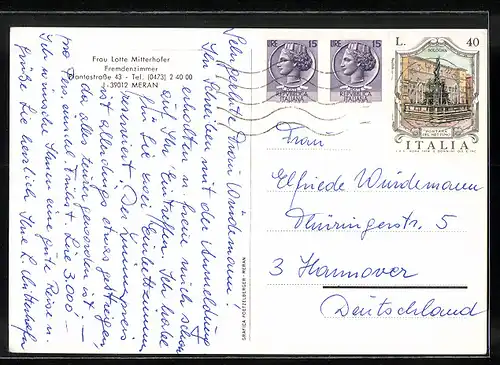 Frau Lotte Mitterhofer
Fremdenzimmer
Dantestraße 43 - Tel. (0473) 2 40 00
I-39012 MERAN
Sehr geehrte Frau Würdemann!
Ihr Schreiben mit der Anmeldung
erhalten u. freue mich schon
auf Ihr Eintreffen. Ich habe
für Sie zwei Einbettzimmer
reserviert. Der Zimmerpreis
ist allerdings etwas gestiegen,
da alles teurer geworden ist! -
pro Person einmal Frühst. Lire 3.000 -
Ich wünsche Ihnen eine gute Reise u.
grüße Sie herzlich Ihre L. Mitterhofer
LIRE 15
REPUBBLICA
ITALIANA
LIRE 15
REPUBBLICA
ITALIANA
L. 40
BOLOGNA
FONTANA
DEL NETTUNO
ITALIA
Frau
Elfriede Würdemann
Thüringerstr. 5
3 Hannover
Deutschland
MERAN